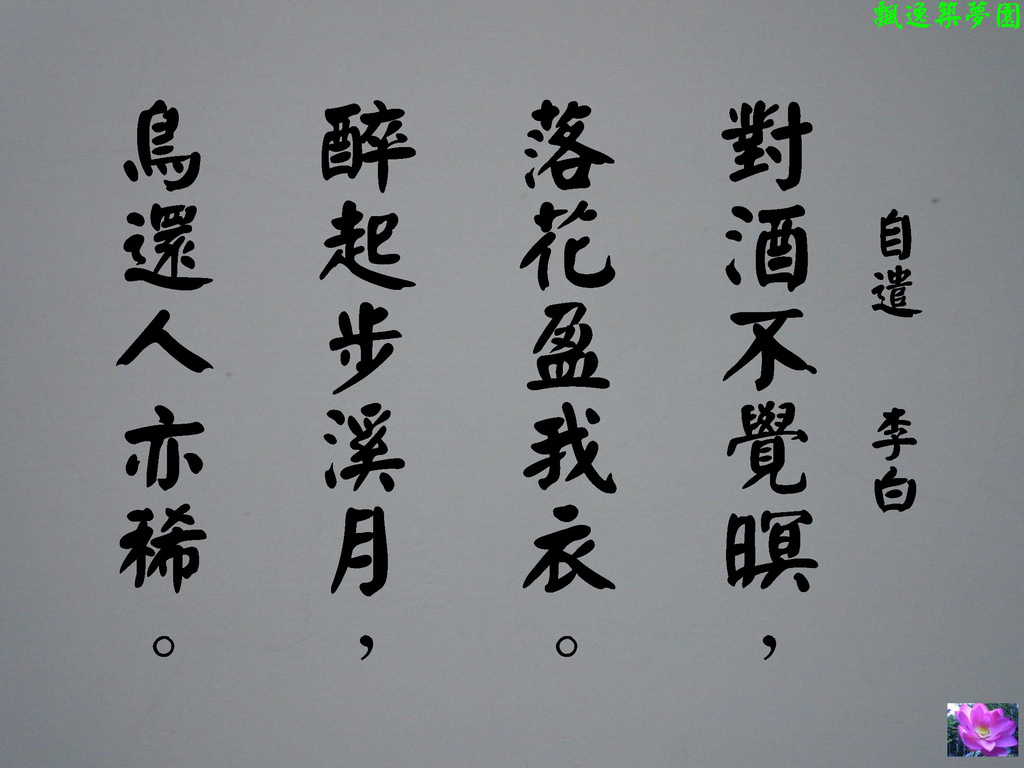 飄逸築夢園
自遣 李白
對酒不覺暝，
落花盈我衣。
醉起步溪月，
鳥還人亦稀。